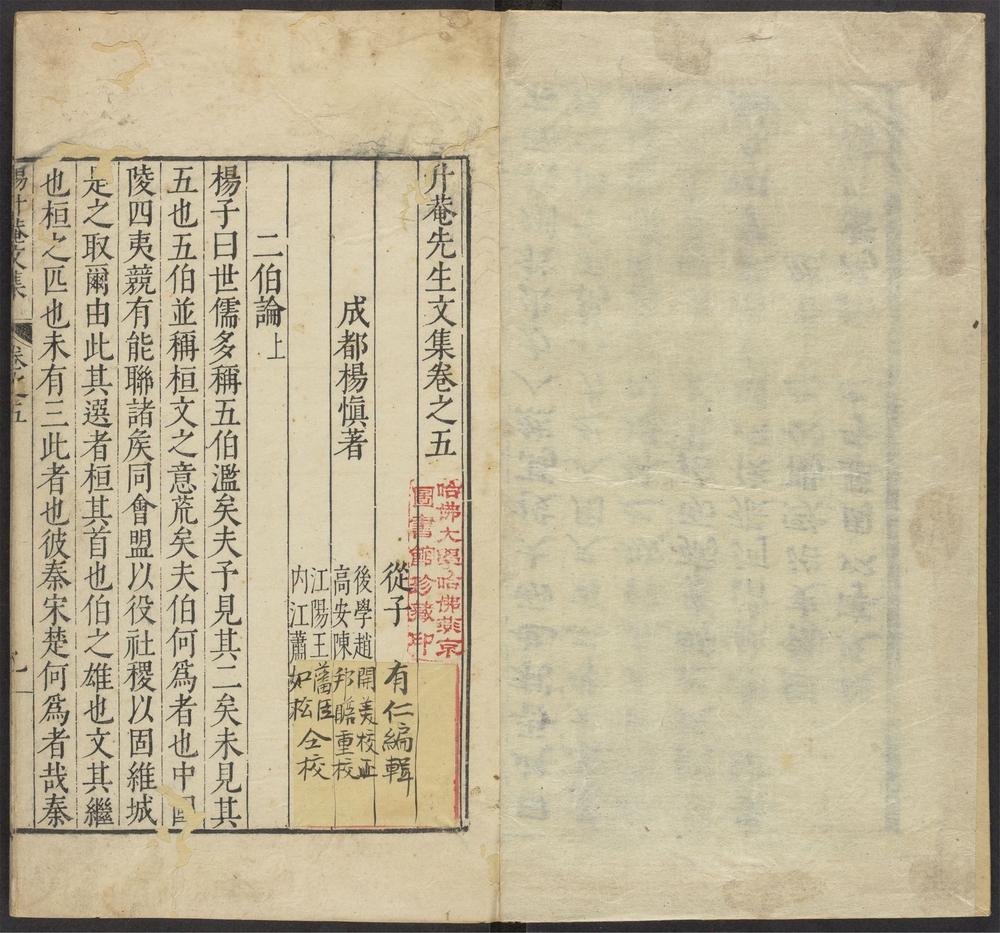 升菴先生文集卷之五
哈佛大學哈佛燕京
圖書館珍藏印
從子 有仁編輯
成都楊慎著
後學趙開美校正
高安陳邦瞻重校
江陽王藩臣
内江蕭如松 仝校
二伯論上
楊子曰世儒多稱五伯濫矣夫子見其二矣未見其
五也五伯並稱桓文之意荒矣夫伯何為者也中國
陵四夷競有能聯諸矦同會盟以役社稷以固維城
是之取爾由此其選者桓其首也伯之雄也文其繼
也桓之匹也未有三此者也彼秦宋楚何為者哉秦
楊升菴文集
卷之五